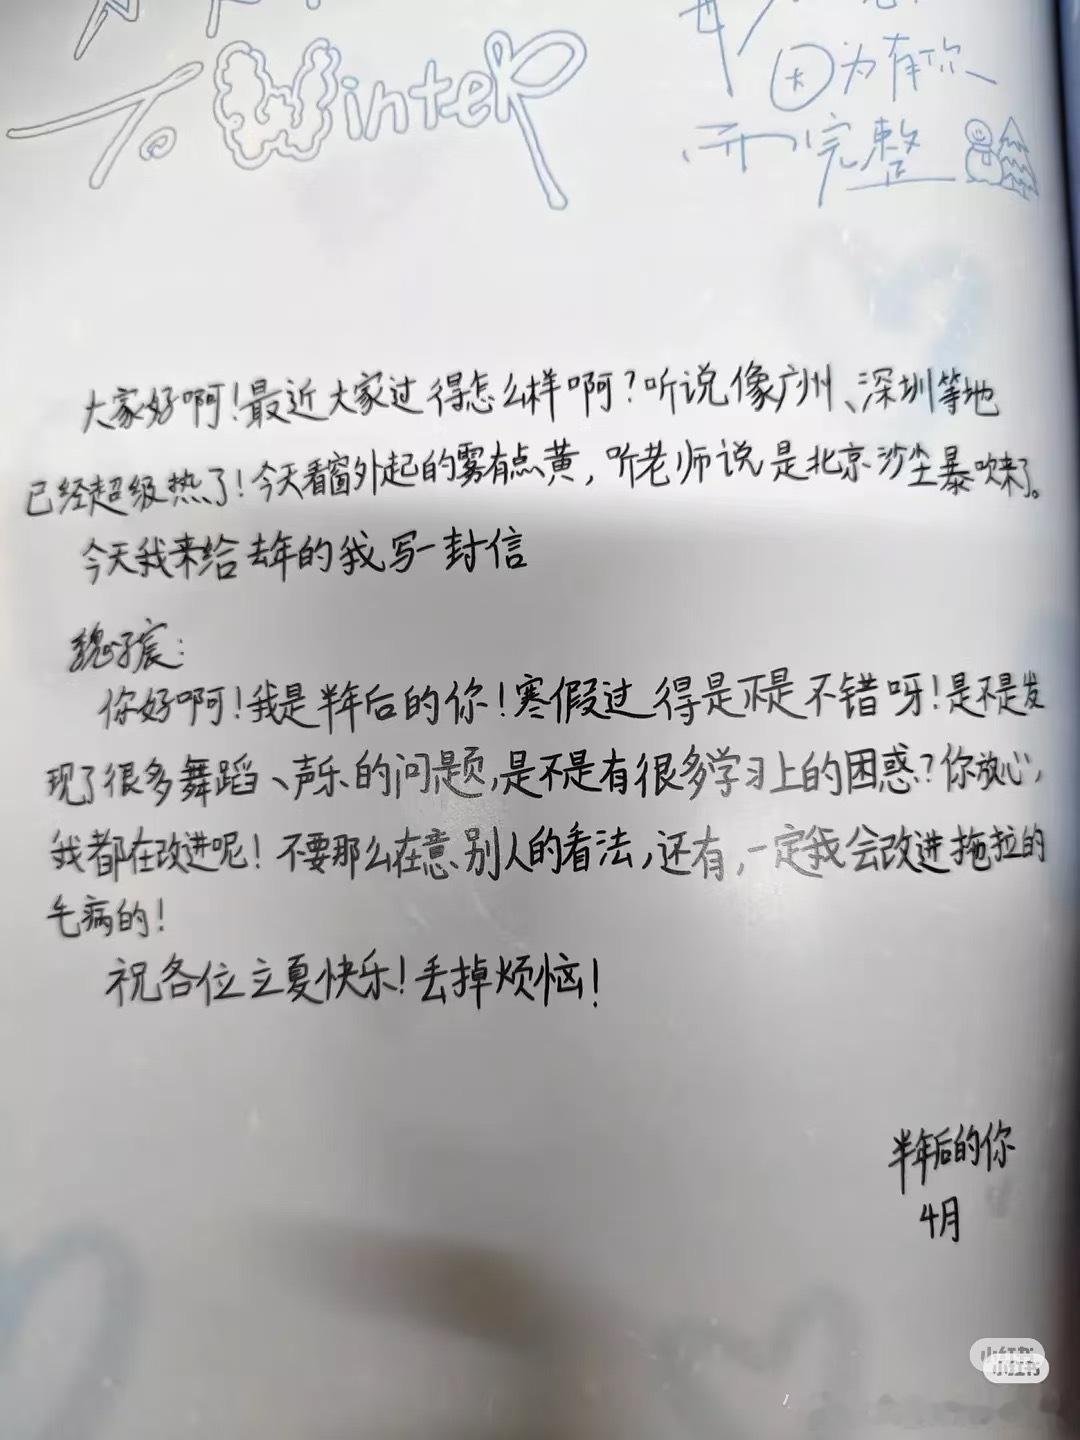 To Winter
因为有你
而完整
大家好啊!最近大家过得怎么样啊?听说像广州、深圳等地
已经超级热了!今天看窗外起的雾有点黄,听老师说是北京沙尘暴吹来了。
今天我来给去年的我写一封信
魏子宸:
你好啊!我是半年后的你!寒假过得是不是不错呀!是不是发
现了很多舞蹈、声乐的问题,是不是有很多学习上的困惑?你放心,
我都在改进呢!不要那么在意别人的看法,还有,一定我会改进拖拉的
毛病的!
祝各位立夏快乐!丢掉烦恼!
半年后的你
4月
小红书
小红书